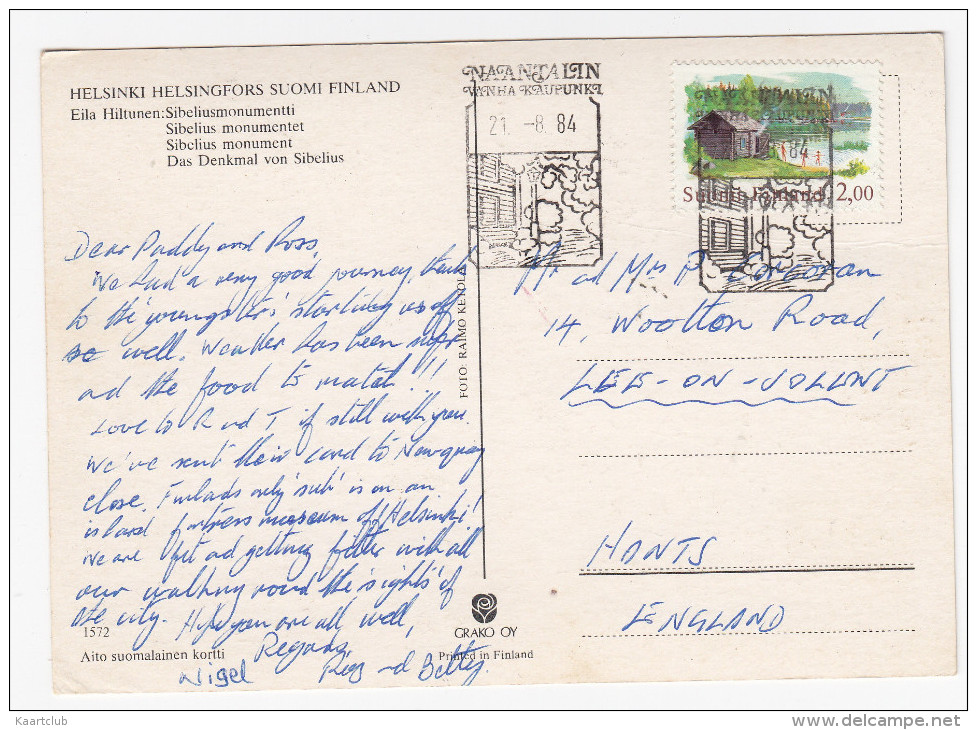 HELSINKI HELSINGFORS SUOMI FINLAND
Eila Hiltunen: Sibeliusmonumentti
Sibelius monumentet
Sibelius monument
Das Denkmal von Sibelius
NAANTALIN
VANHA KAUPUNKI
21. -8. 84
NAANTALIN
VANHA KAUPUNKI
84
Suomi Finland 2,00
Dear Paddy and Ross,
We had a very good journey, thanks
to the youngsters starting us off
so well. Weather has been super
ad the food to match!!!
Love to R nd T if still with you.
We've sent their card to Newquay
close. Finlads only 'sub' is on an
island fortress museum of Helsinki!
We are fit ad getting fitter with all
our walking round the 'sights' of
the city. Hope you are all well,
Regards,
Nigel Reg nd Betty.
Mr ad Mrs P. Corcoran
14, Wootton Road,
LEE-ON-SOLENT
HANTS
ENGLAND
FOTO: RAIMO KETOLA
1572
Aito suomalainen kortti
GRAKO OY
Printed in Finland
Kaartclub
www.delcampe.net